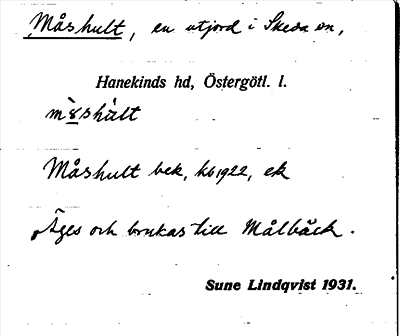 Måshult, en utjord i Skeda sn,
Hanekinds hd, Östergötl. l.
Måshult bek, kb 1922, ek
Äges och brukas till Målbäck.
Sune Lindqvist 1931.